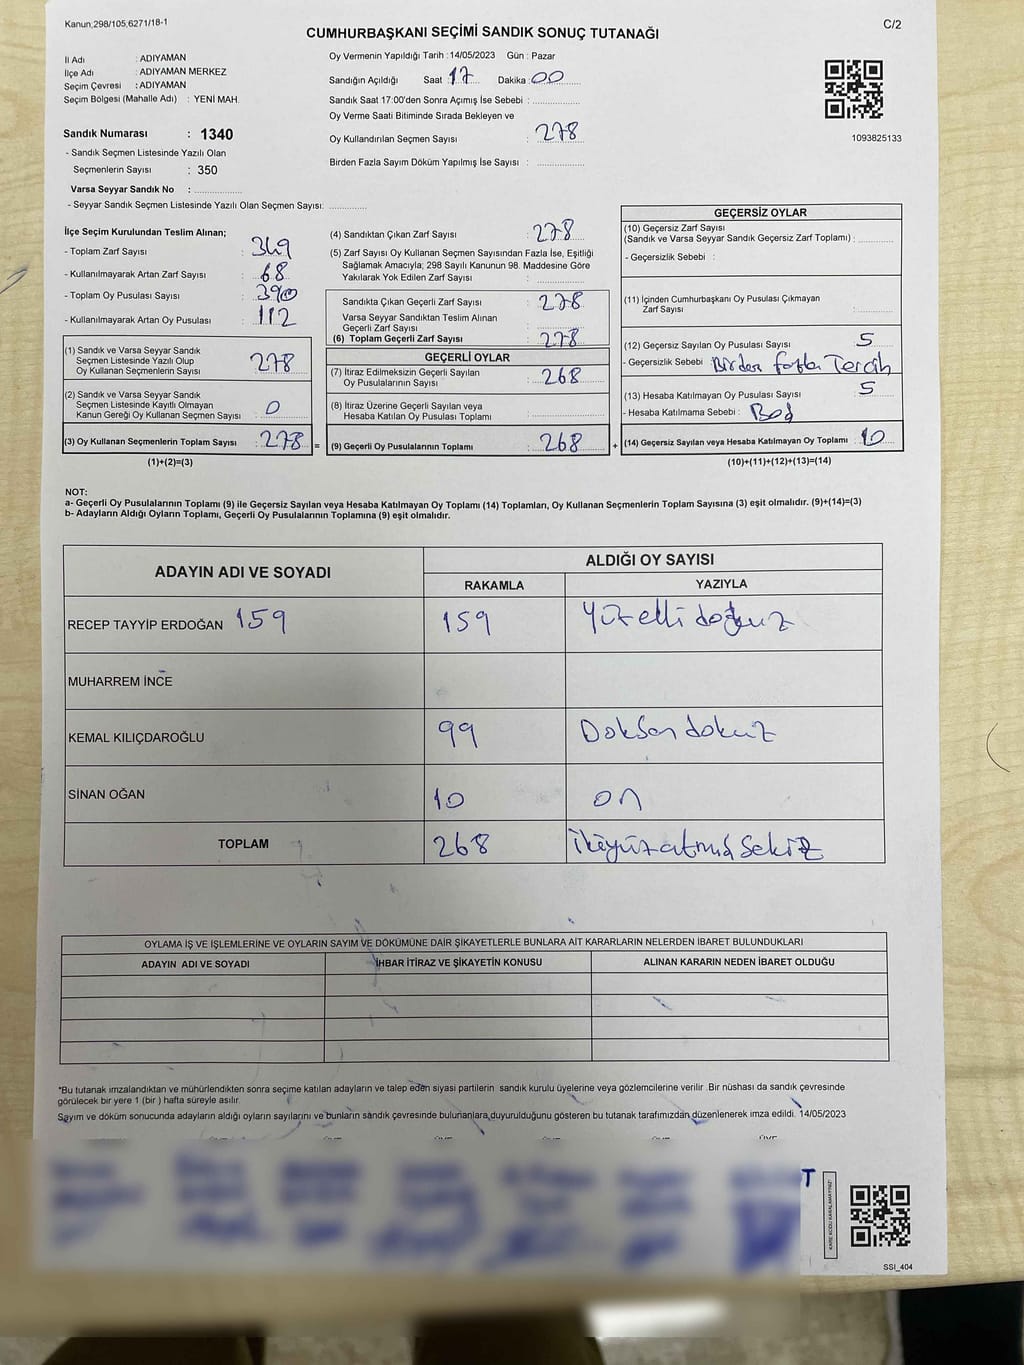 Kanun,298/105,6271/18-1
C/2
CUMHURBAŞKANI SEÇİMİ SANDIK SONUÇ TUTANAĞI
İl Adı : ADIYAMAN
İlçe Adı : ADIYAMAN MERKEZ
Seçim Çevresi : ADIYAMAN
Seçim Bölgesi (Mahalle Adı) : YENİ MAH.
Sandık Numarası : 1340
- Sandık Seçmen Listesinde Yazılı Olan
Seçmenlerin Sayısı : 350
Varsa Seyyar Sandık No : ...............
- Seyyar Sandık Seçmen Listesinde Yazılı Olan Seçmen Sayısı: ............
Oy Vermenin Yapıldığı Tarih : 14/05/2023 Gün : Pazar
Sandığın Açıldığı Saat 17 Dakika : 00
Sandık Saat 17:00'den Sonra Açımış İse Sebebi : ...............
Oy Verme Saati Bitiminde Sırada Bekleyen ve
Oy Kullandırılan Seçmen Sayısı : 278
Birden Fazla Sayım Döküm Yapılmış İse Sayısı : ...............
1093825133
İlçe Seçim Kurulundan Teslim Alınan;
- Toplam Zarf Sayısı : 349
- Kullanılmayarak Artan Zarf Sayısı : 68
- Toplam Oy Pusulası Sayısı : 390
- Kullanılmayarak Artan Oy Pusulası : 112
(1) Sandık ve Varsa Seyyar Sandık
Seçmen Listesinde Yazılı Olup
Oy Kullanan Seçmenlerin Sayısı : 278
(2) Sandık ve Varsa Seyyar Sandık
Seçmen Listesinde Kayıtlı Olmayan
Kanun Gereği Oy Kullanan Seçmen Sayısı : 0
(3) Oy Kullanan Seçmenlerin Toplam Sayısı : 278 =
(1)+(2)=(3)
(4) Sandıktan Çıkan Zarf Sayısı : 278
(5) Zarf Sayısı Oy Kullanan Seçmen Sayısından Fazla İse, Eşitliği
Sağlamak Amacıyla; 298 Sayılı Kanunun 98. Maddesine Göre
Yakılarak Yok Edilen Zarf Sayısı : ...............
Sandıkta Çıkan Geçerli Zarf Sayısı : 278
Varsa Seyyar Sandıktan Teslim Alınan
Geçerli Zarf Sayısı : ...............
(6) Toplam Geçerli Zarf Sayısı : 278
GEÇERLİ OYLAR
(7) İtiraz Edilmeksizin Geçerli Sayılan
Oy Pusulalarının Sayısı : 268
(8) İtiraz Üzerine Geçerli Sayılan veya
Hesaba Katılan Oy Pusulası Toplamı : ...............
(9) Geçerli Oy Pusulalarının Toplamı : 268 +
GEÇERSİZ OYLAR
(10) Geçersiz Zarf Sayısı
(Sandık ve Varsa Seyyar Sandık Geçersiz Zarf Toplamı) : ............
- Geçersizlik Sebebi :
(11) İçinden Cumhurbaşkanı Oy Pusulası Çıkmayan
Zarf Sayısı : ............
(12) Geçersiz Sayılan Oy Pusulası Sayısı : 5
- Geçersizlik Sebebi : Birden fazla Tercih
(13) Hesaba Katılmayan Oy Pusulası Sayısı : 5
- Hesaba Katılmama Sebebi : Boş
(14) Geçersiz Sayılan veya Hesaba Katılmayan Oy Toplamı : 10
(10)+(11)+(12)+(13)=(14)
NOT:
a- Geçerli Oy Pusulalarının Toplamı (9) ile Geçersiz Sayılan veya Hesaba Katılmayan Oy Toplamı (14) Toplamları, Oy Kullanan Seçmenlerin Toplam Sayısına (3) eşit olmalıdır. (9)+(14)=(3)
b- Adayların Aldığı Oyların Toplamı, Geçerli Oy Pusulalarının Toplamına (9) eşit olmalıdır.
ADAYIN ADI VE SOYADI
ALDIĞI OY SAYISI
RAKAMLA YAZIYLA
RECEP TAYYİP ERDOĞAN 159 159 Yüzellidoğuz
MUHARREM İNCE
KEMAL KILIÇDAROĞLU 99 Doksandokuz
SİNAN OĞAN 10 on
TOPLAM 268 ikiyüzatmışsekiz
OYLAMA İŞ VE İŞLEMLERİNE VE OYLARIN SAYIM VE DÖKÜMÜNE DAİR ŞİKAYETLERLE BUNLARA AİT KARARLARIN NELERDEN İBARET BULUNDUKLARI
ADAYIN ADI VE SOYADI İHBAR İTİRAZ VE ŞİKAYETİN KONUSU ALINAN KARARIN NEDEN İBARET OLDUĞU
*Bu tutanak imzalandıktan ve mühürlendikten sonra seçime katılan adayların ve talep eden siyasi partilerin sandık kurulu üyelerine veya gözlemcilerine verilir .Bir nüshası da sandık çevresinde
görülecek bir yere 1 (bir ) hafta süreyle asılır.
Sayım ve döküm sonucunda adayların aldığı oyların sayılarını ve bunların sandık çevresinde bulunanlara duyurulduğunu gösteren bu tutanak tarafımızdan düzenlenerek imza edildi. 14/05/2023
KARE KODU KARALAMAYINIZ!
SSI_404